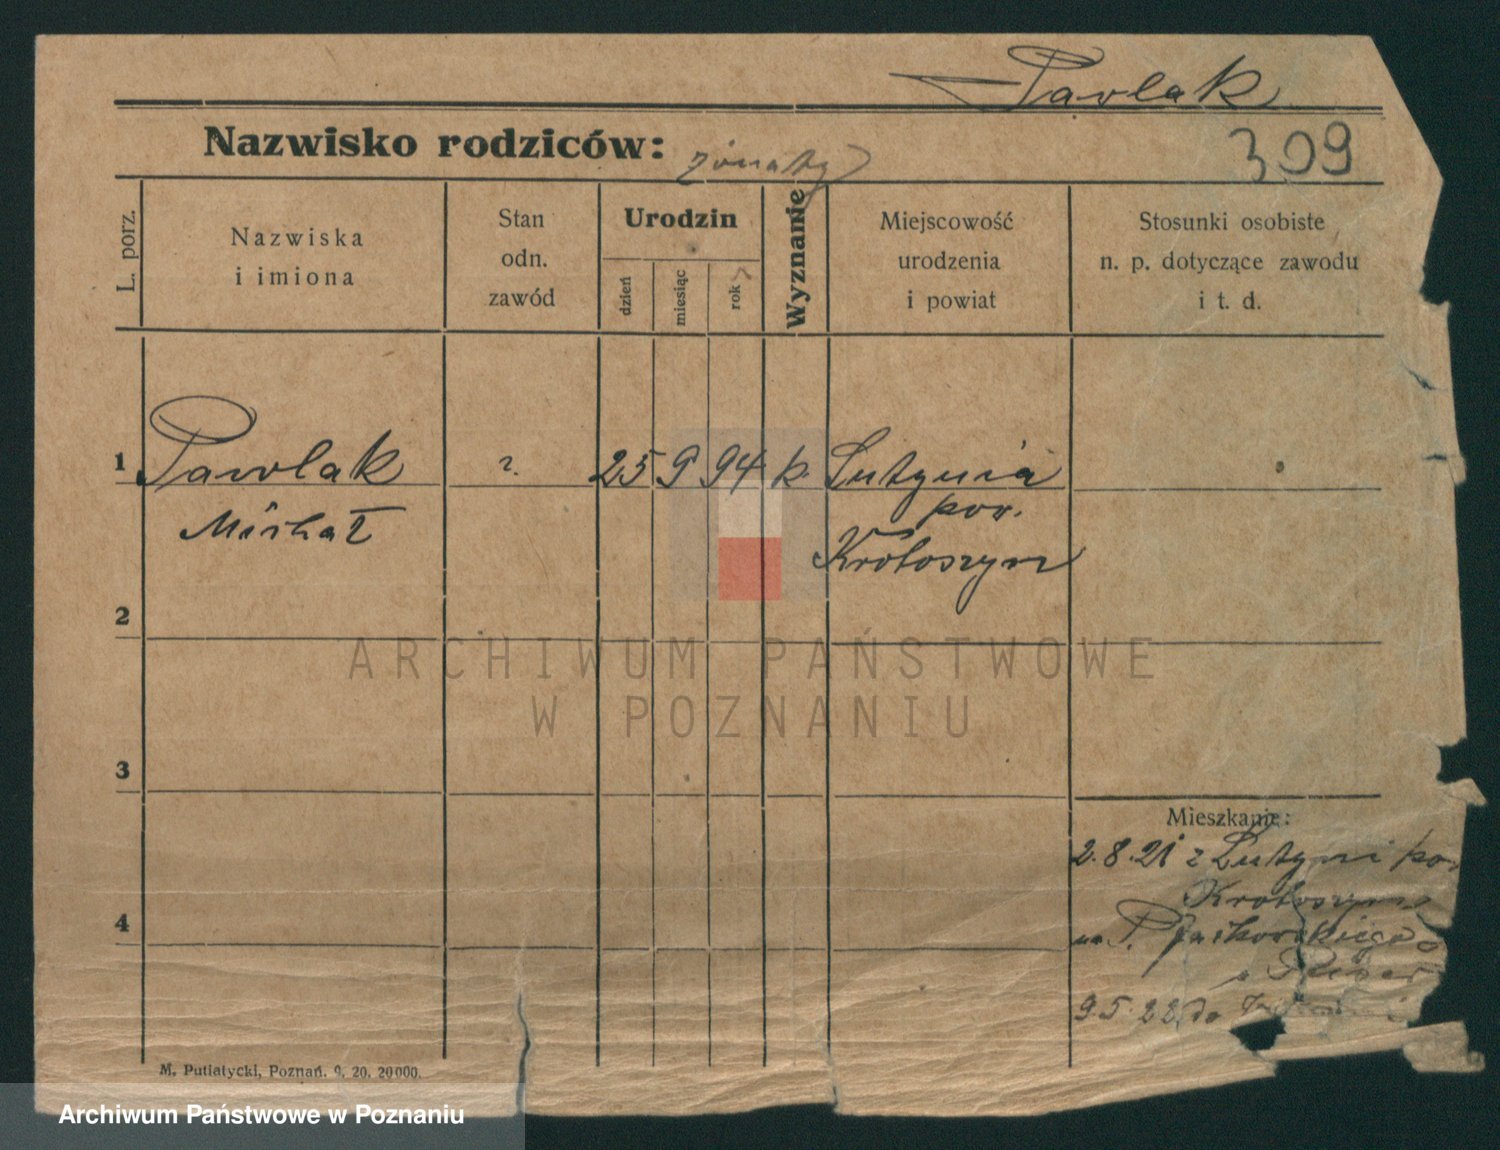 Pawlak
Nazwisko rodziców:
309
L. porz.
Nazwiska
i imiona
Stan
odn.
zawód
Urodzin
dzień
miesiąc
rok
Wyznanie
Miejscowość
urodzenia
i powiat
Stosunki osobiste
n. p. dotyczące zawodu
i t. d.
1 Pawlak r. 25 9 94 k. Lutynia
Michał
pow.
Krotoszyn
2
ARCHIWUM PAŃSTWOWE
W POZNANIU
3
Mieszkanie:
2.8.21 z Lutyni pow.
Krotoszyn
4
9.5.22 do
M. Putiatycki, Poznań. 9. 20. 20000.
Archiwum Państwowe w Poznaniu